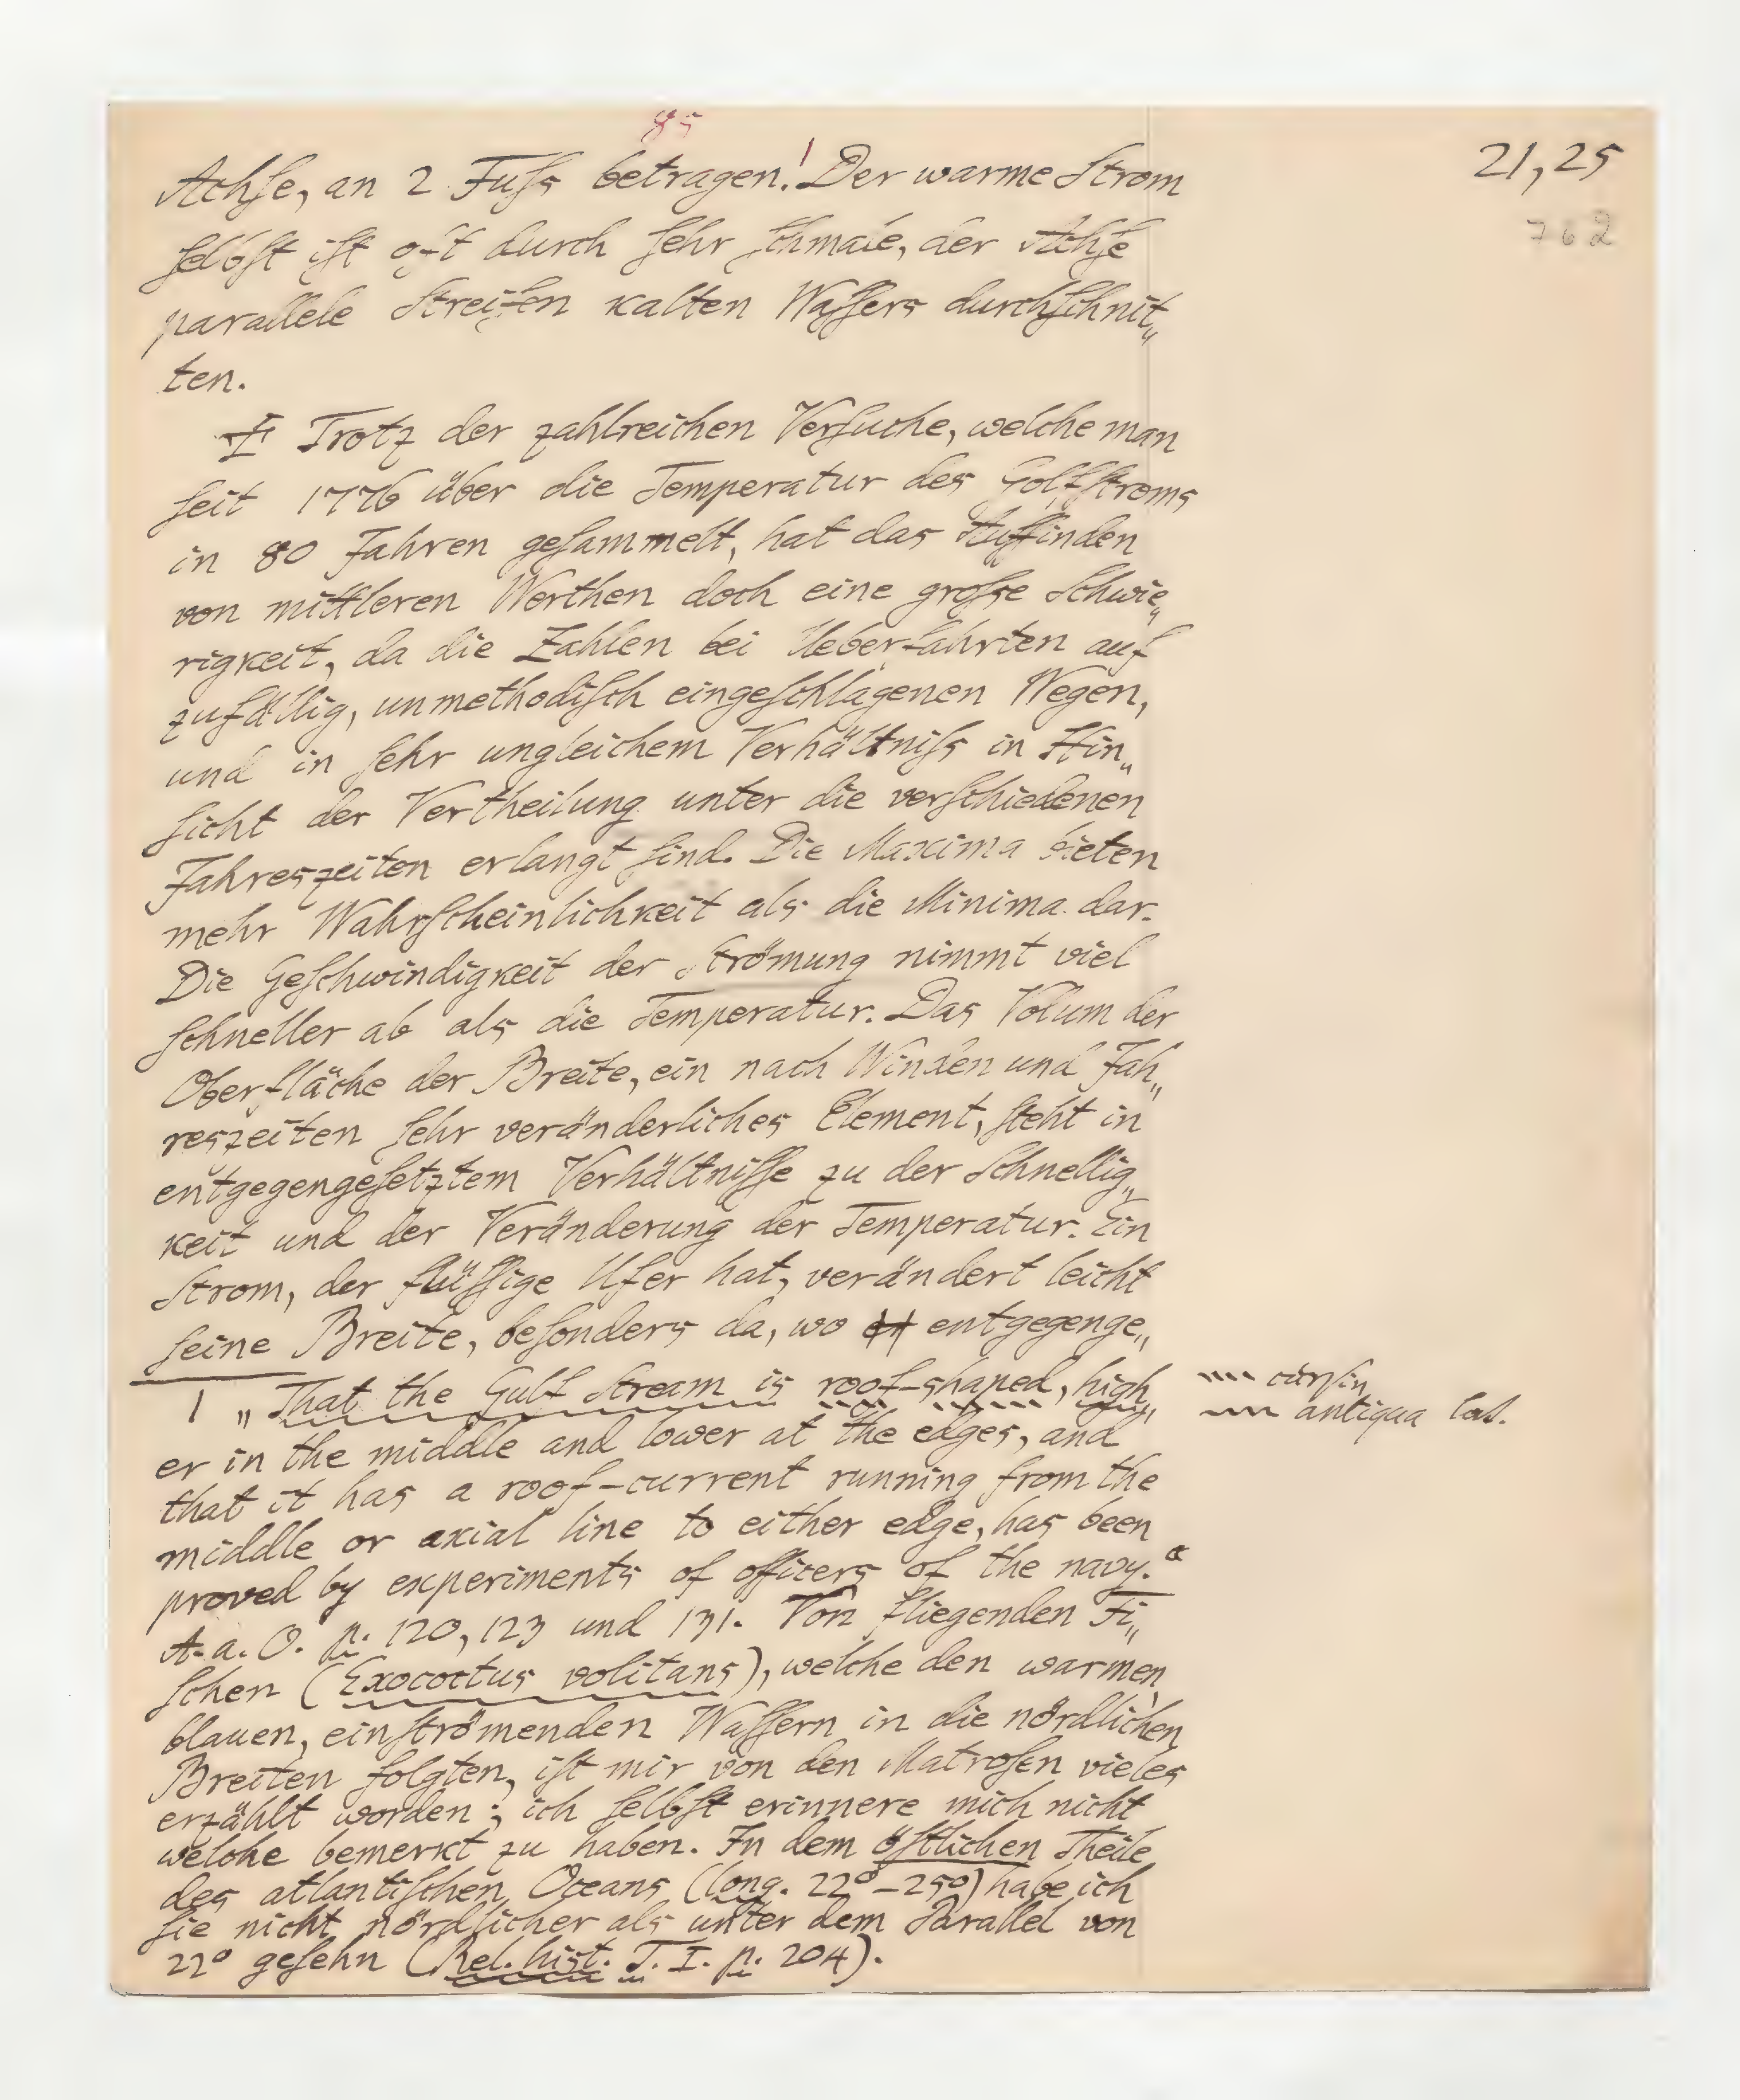 85
21,25
762
Achſe, an 2 Fuſs betragen.! Der warme Strom
ſelbſt iſt oft durch ſehr ſchmale, der Achſe
parallele Streifen kalten Waſſers durchſchnit„
ten.
Trotz der zahlreichen Verſuche, welche man
ſeit 1776 über die Temperatur des Golfſtroms
in 80 Jahren geſammelt, hat das Auffinden
von mittleren Werthen doch eine groſse Schwie„
rigkeit, da die Zahlen bei Ueberfahrten auf
zufällig, unmethodiſch eingeſchlagenen Wegen,
und in ſehr ungleichem Verhältniſs in Hin„
ſicht der Vertheilung unter die verſchiedenen
Jahreszeiten erlangt ſind. Die Maxima bieten
mehr Wahrſcheinlichkeit als die Minima dar.
Die Geſchwindigkeit der Strömung nimmt viel
ſchneller ab als die Temperatur. Das Volum der
Oberfläche der Breite, ein nach Winden und Jah„
reszeiten ſehr veränderliches Element, ſteht in
entgegengeſetztem Verhältniſſe zu der Schnellig„
keit und der Veränderung der Temperatur. Ein
Strom, der flüſſige Ufer hat, verändert leicht
ſeine Breite, beſonders da, wo entgegenge„
1 „That the Gulf Stream is roof-shaped, high„
er in the middle and lower at the edges, and
that it has a roof-current running from the
middle or axial line to either edge, has been
proved by experiments of officers of the navy.“
A. a. O. p. 120, 123 und 131. Von fliegenden Fi„
ſchen (Exocoetus volitans), welche den warmen,
blauen, einſtrömenden Waſſern in die nördlichen
Breiten folgten, iſt mir von den Matroſen vieles
erzählt worden; ich ſelbſt erinnere mich nicht
welche bemerkt zu haben. In dem öſtlichen Theile
des atlantiſchen Oceans (long. 22°–25°) habe ich
ſie nicht nördlicher als unter dem Parallel von
22° geſehn (Rel. hist. T. I. p. 204).
curſiv
antiqua lat.